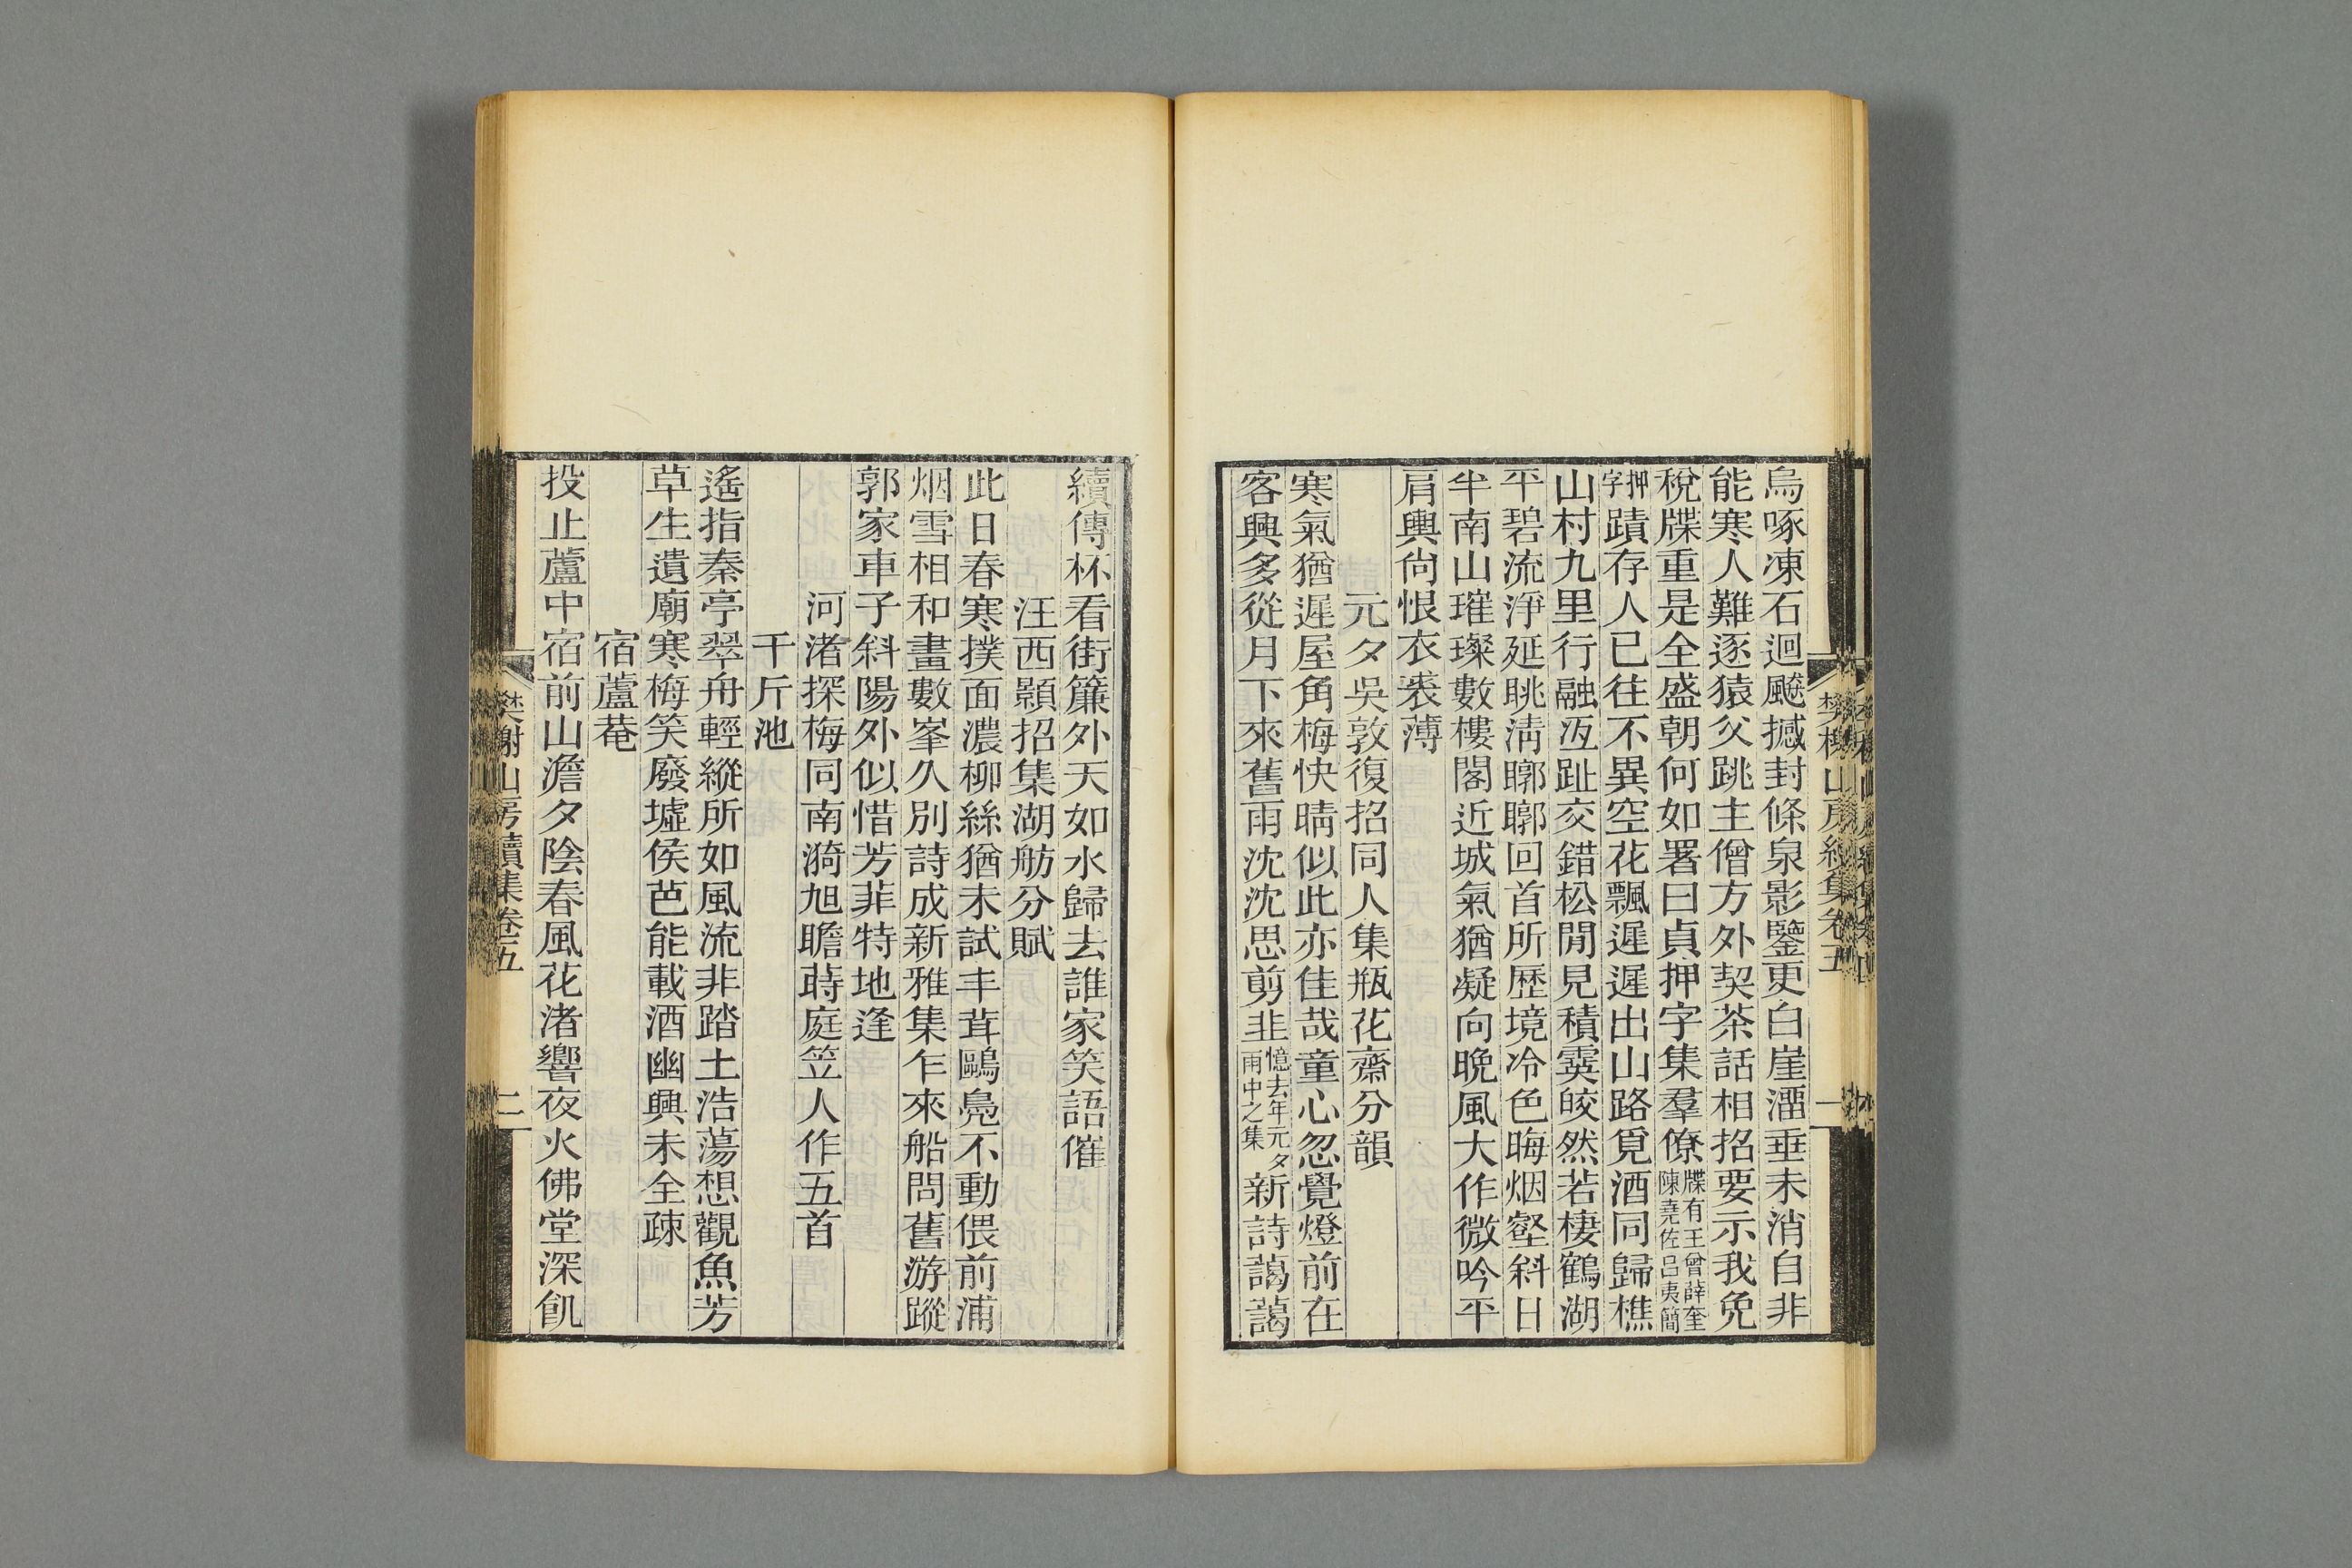 樊榭山房續集卷五
一
烏啄凍石迴飇撼封條泉影鑒更白崖澑垂未消自非
能寒人難逐猿父跳主僧方外契茶話相招要示我免
稅牒重是全盛朝何如署曰貞押字集羣僚牒有王曾薛奎陳堯佐呂夷簡
押字蹟存人已往不異空花飄遲遲出山路覓酒同歸樵
山村九里行融沍趾交錯松閒見積霙皎然若棲鶴湖
平碧流淨延眺淸矊矊回首所歷境冷色晦烟壑斜日
半南山璀璨數樓閣近城氣猶凝向晚風大作微吟平
肩輿尙恨衣裘薄
元夕吳敦復招同人集瓶花齋分韻
寒氣猶遲屋角梅快晴似此亦佳哉童心忽覺燈前在
客興多從月下來舊雨沈沈思剪韭憶去年元夕雨中之集新詩藹藹
續傳杯看街簾外天如水歸去誰家笑語催
汪西顥招集湖舫分賦
此日春寒撲面濃柳絲猶未試丰茸鷗鳧不動偎前浦
烟雪相和畫數峯久別詩成新雅集乍來船問舊游蹤
郭家車子斜陽外似惜芳菲特地逢
河渚探梅同南漪旭瞻蒔庭笠人作五首
千斤池
遙指秦亭翠舟輕縱所如風流非踏土浩蕩想觀魚芳
草生遺廟寒梅笑廢墟侯芭能載酒幽興未全疎
宿蘆菴
投止蘆中宿前山澹夕陰春風花渚響夜火佛堂深飢
樊榭山房續集卷五
二